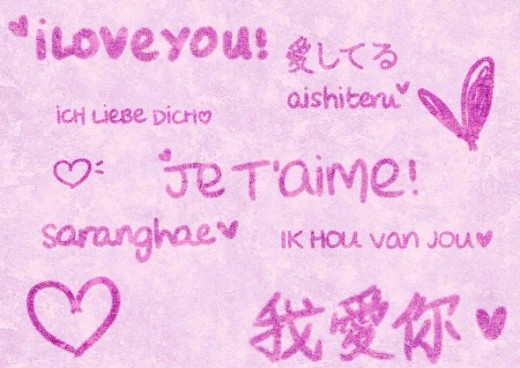 iLoveyou!
愛してる
aishiteru
iCH LieBe DiCH
Je T'aime!
saranghae
IK HOU van JOU
我愛你